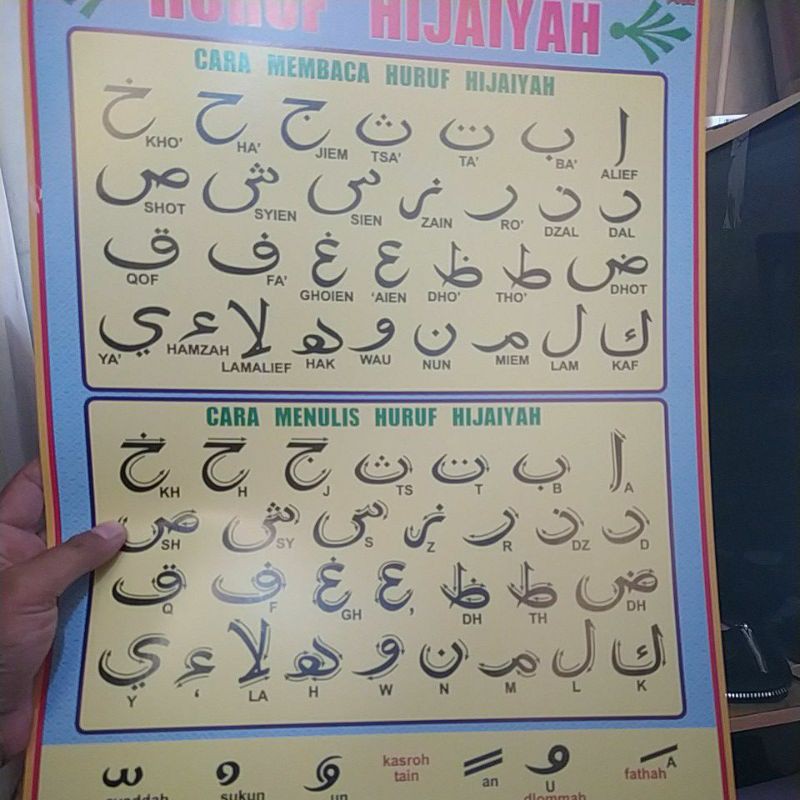 HURUF HIJAIYAH
CARA MEMBACA HURUF HIJAIYAH
ا ب ت ث ج ح خ
ALIEF BA' TA' TSA' JIEM HA' KHO'
د ذ ر ز س ش ص
DAL DZAL RO' ZAIN SIEN SYIEN SHOT
ض ط ظ ع غ ف ق
DHOT THO' DHO' 'AIEN GHOIEN FA' QOF
ك ل م ن و ه لا ء ي
KAF LAM MIEM NUN WAU HAK LAMALIEF HAMZAH YA'
CARA MENULIS HURUF HIJAIYAH
ا ب ت ث ج ح خ
A B T TS J H KH
د ذ ر ز س ش ص
D DZ R Z S SY SH
ض ط ظ ع غ ف ق
DH TH DH ' GH F Q
ك ل م ن و ه لا ء ي
K L M N W H LA ' Y
A U an kasroh
tain un
fathah dlommah sukun syaddah